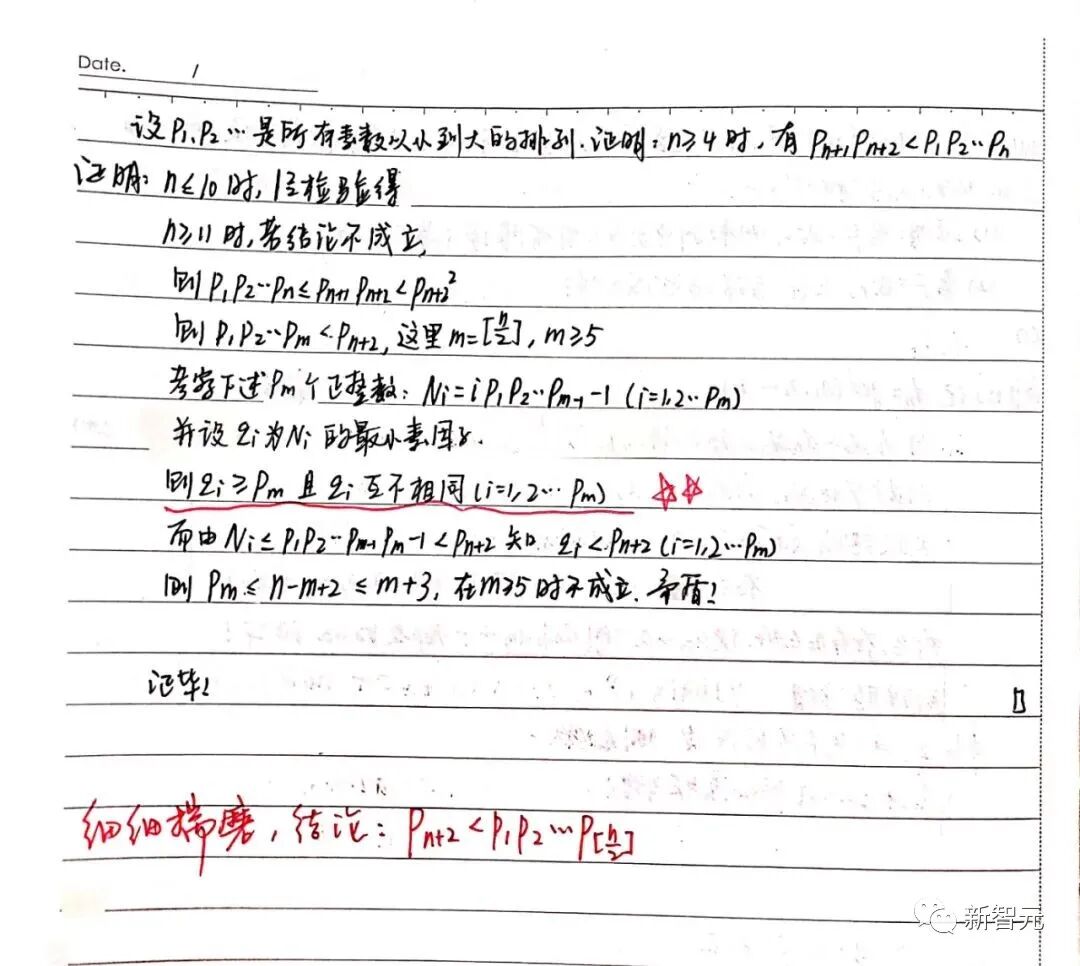 Date. /
设P₁、P₂…是所有素数从小到大的排列.证明:n≥4时,有 Pₙ₊₁Pₙ₊₂<P₁P₂…Pₙ
证明:n≤10时,检验显得
n≥11时,若结论不成立,
则P₁P₂…Pₙ≤Pₙ₊₁Pₙ₊₂<Pₙ₊₂²
则P₁P₂…Pₘ<Pₙ₊₂,这里m=[n/2],m≥5
考察下述Pₘ个正整数:Nᵢ=iP₁P₂…Pₘ₋₁-1(i=1,2…Pₘ)
并设qᵢ为Nᵢ的最小素因子.
则qᵢ≥Pₘ且qᵢ互不相同(i=1,2…Pₘ) ☆☆
而由Nᵢ≤P₁P₂…Pₘ₋₁Pₘ-1<Pₙ₊₂知 qᵢ<Pₙ₊₂(i=1,2…Pₘ)
则Pₘ≤n-m+2≤m+3,在m≥5时不成立.矛盾!
证毕!
细细揣磨,结论:Pₙ₊₂<P₁P₂…P[n/2]
新智元